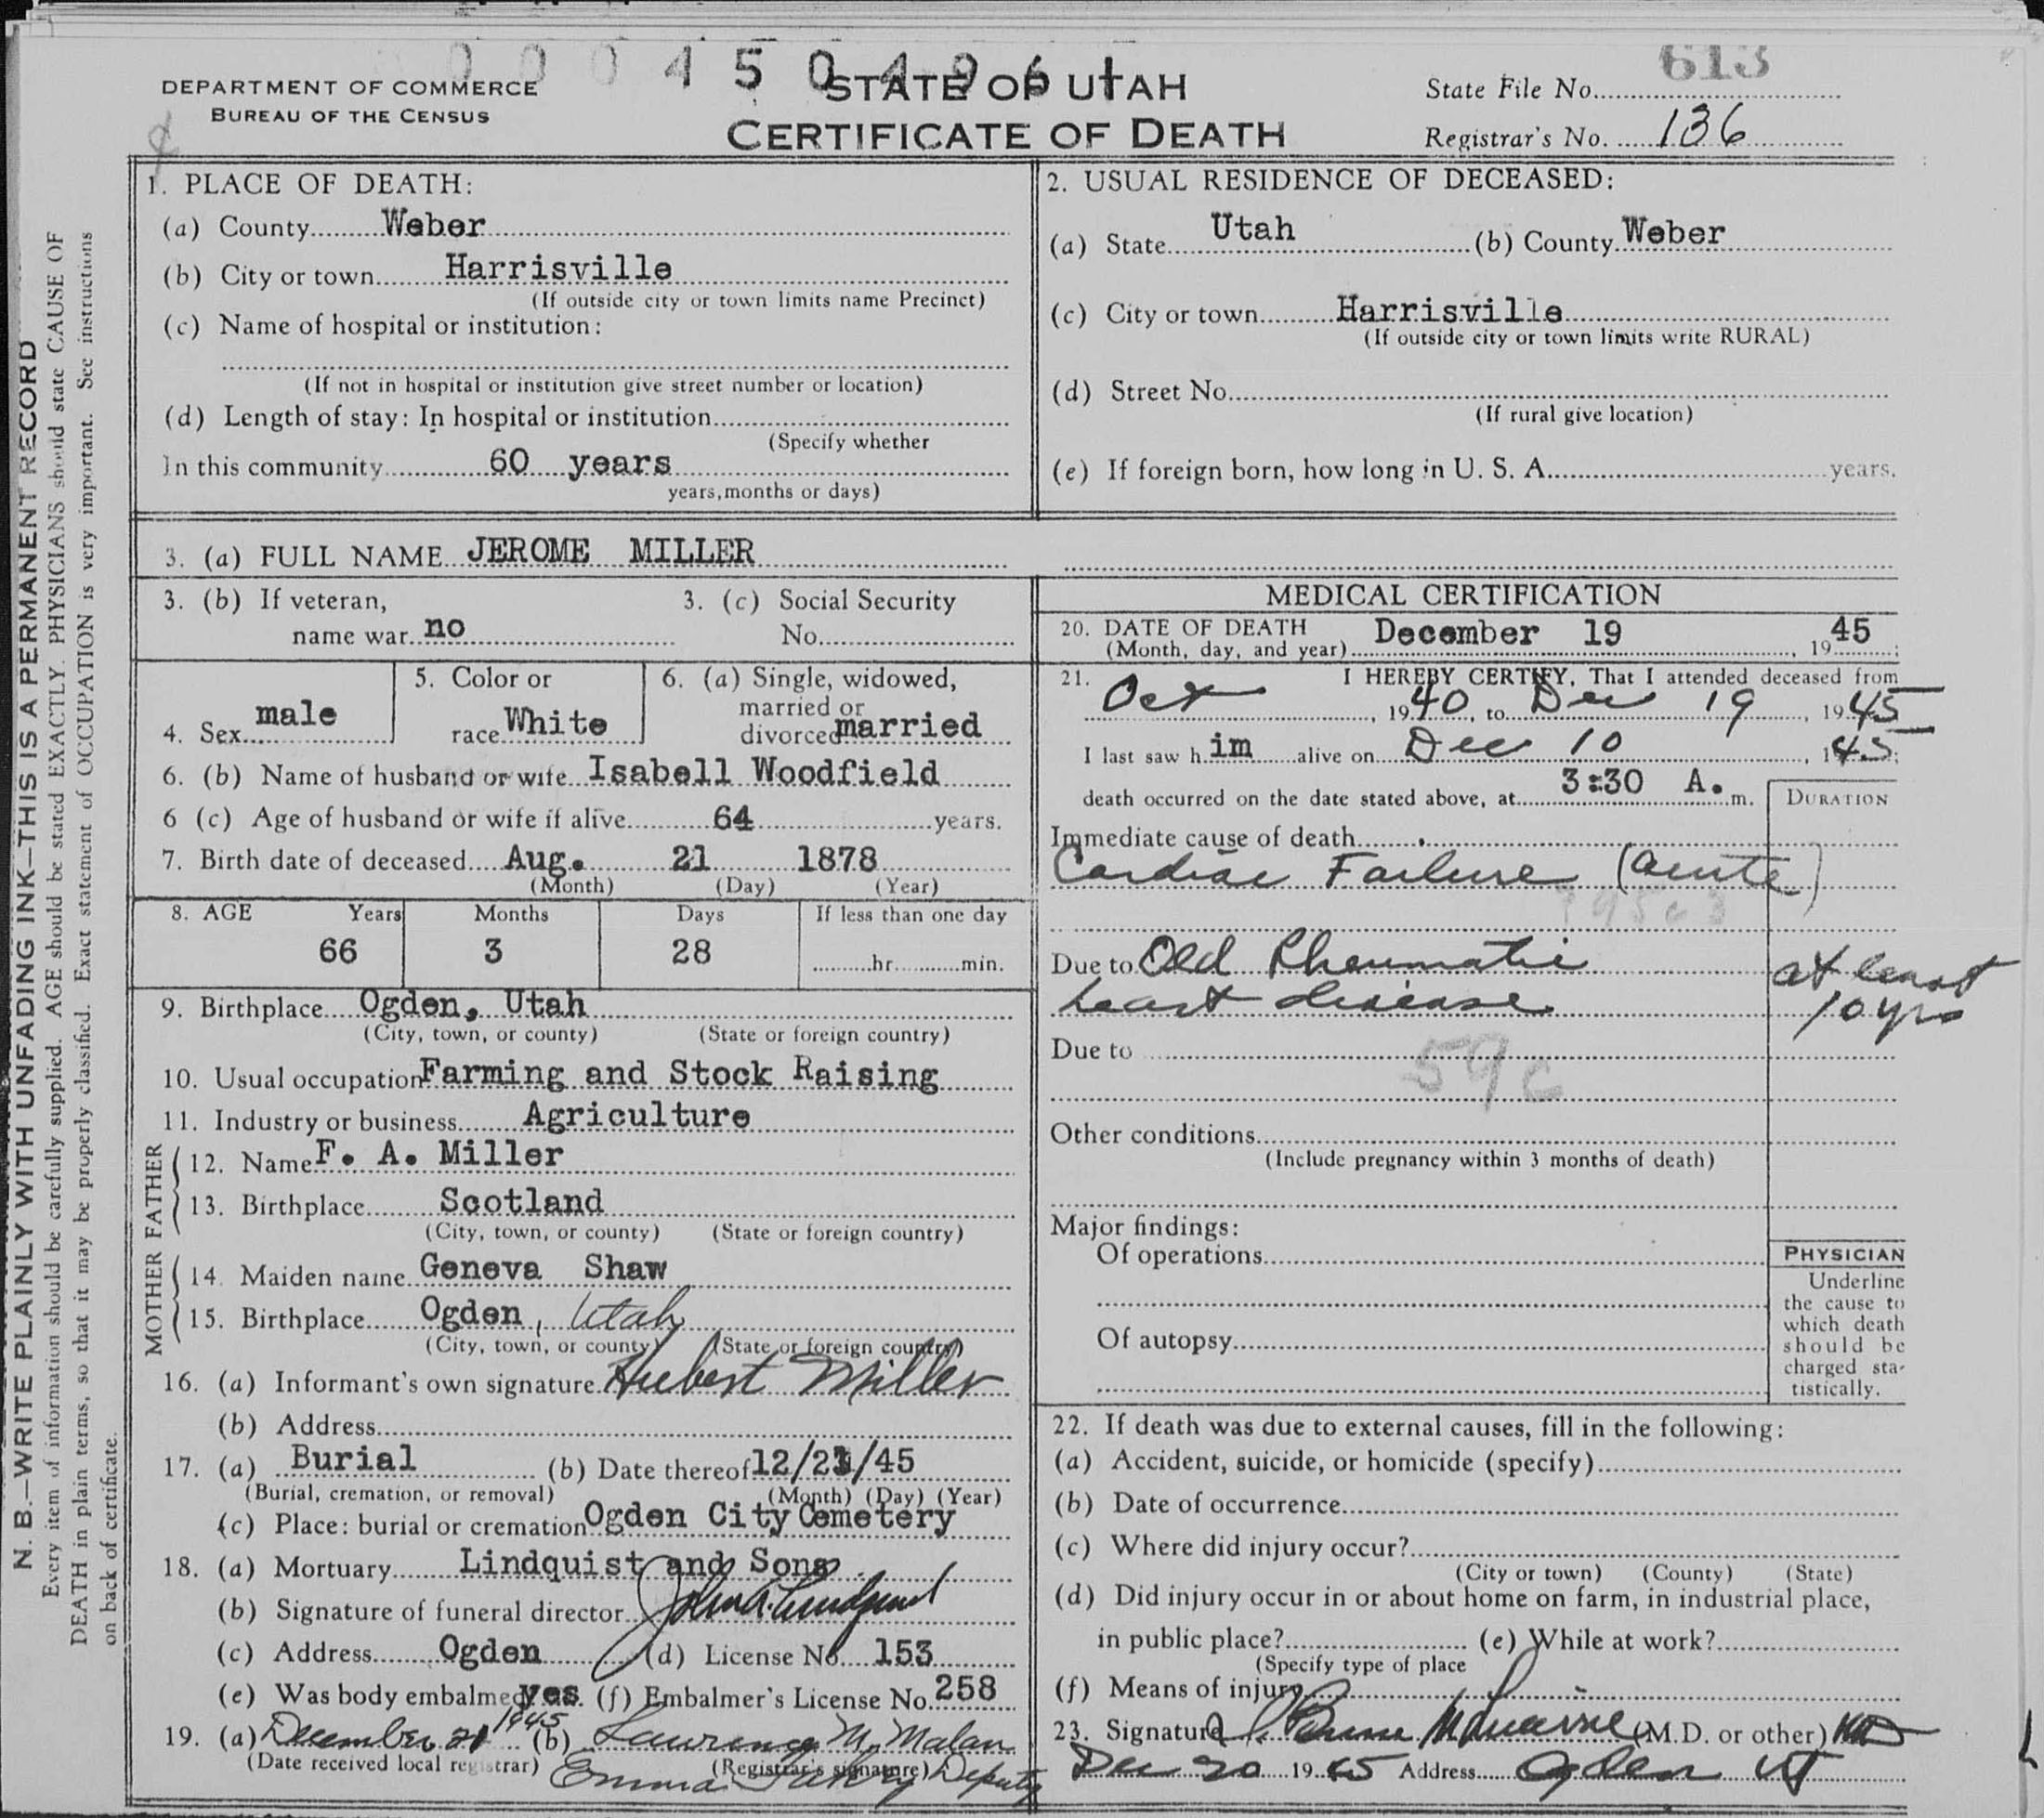 0 0 0 4 5 0 4 9 6 1
613
DEPARTMENT OF COMMERCE
BUREAU OF THE CENSUS
STATE OF UTAH
CERTIFICATE OF DEATH
State File No.
Registrar's No. 136
N. B.—WRITE PLAINLY WITH UNFADING INK—THIS IS A PERMANENT RECORD
Every item of information should be carefully supplied. AGE should be stated EXACTLY. PHYSICIANS should state CAUSE OF
DEATH in plain terms, so that it may be properly classified. Exact statement of OCCUPATION is very important. See instructions
on back of certificate.
1. PLACE OF DEATH:
(a) County Weber
(b) City or town Harrisville
(If outside city or town limits name Precinct)
(c) Name of hospital or institution:
(If not in hospital or institution give street number or location)
(d) Length of stay: In hospital or institution
(Specify whether
In this community 60 years
years, months or days)
2. USUAL RESIDENCE OF DECEASED:
(a) State Utah (b) County Weber
(c) City or town Harrisville
(If outside city or town limits write RURAL)
(d) Street No.
(If rural give location)
(e) If foreign born, how long in U. S. A. years.
3. (a) FULL NAME JEROME MILLER
3. (b) If veteran,
name war no
3. (c) Social Security
No.
4. Sex male
5. Color or
race White
6. (a) Single, widowed,
married or
divorced married
6. (b) Name of husband or wife Isabell Woodfield
6 (c) Age of husband or wife if alive 64 years.
7. Birth date of deceased Aug. 21 1878
(Month) (Day) (Year)
8. AGE Years Months Days If less than one day
66 3 28 hr. min.
9. Birthplace Ogden, Utah
(City, town, or county) (State or foreign country)
10. Usual occupation Farming and Stock Raising
11. Industry or business Agriculture
FATHER
12. Name F. A. Miller
13. Birthplace Scotland
(City, town, or county) (State or foreign country)
MOTHER
14. Maiden name Geneva Shaw
15. Birthplace Ogden, Utah
(City, town, or county) (State or foreign country)
16. (a) Informant's own signature Hubert Miller
(b) Address
17. (a) Burial (b) Date thereof 12/21/45
(Burial, cremation, or removal) (Month) (Day) (Year)
(c) Place: burial or cremation Ogden City Cemetery
18. (a) Mortuary Lindquist and Sons
(b) Signature of funeral director John A. Lindquist
(c) Address Ogden (d) License No. 153
(e) Was body embalmed yes (f) Embalmer's License No. 258
19. (a) December 21 1945 (b) Lawrence M. Malan
(Date received local registrar) (Registrar's signature)
Emma Deputy
MEDICAL CERTIFICATION
20. DATE OF DEATH
(Month, day, and year) December 19, 1945;
21. I HEREBY CERTIFY, That I attended deceased from
Oct, 1940, to Dec 19, 1945
I last saw h im alive on Dec 10, 145;
death occurred on the date stated above, at 3:30 A. m.
DURATION
Immediate cause of death
Cardiac Failure (acute)
Due to Old Rheumatic
heart disease
at least
10 yrs
Due to
59c
Other conditions
(Include pregnancy within 3 months of death)
Major findings:
Of operations
Of autopsy
PHYSICIAN
Underline
the cause to
which death
should be
charged sta-
tistically.
22. If death was due to external causes, fill in the following:
(a) Accident, suicide, or homicide (specify)
(b) Date of occurrence
(c) Where did injury occur?
(City or town) (County) (State)
(d) Did injury occur in or about home on farm, in industrial place,
in public place? (e) While at work?
(Specify type of place
(f) Means of injury
23. Signature (M.D. or other) MD
Dec 20 1945 Address Ogden Ut